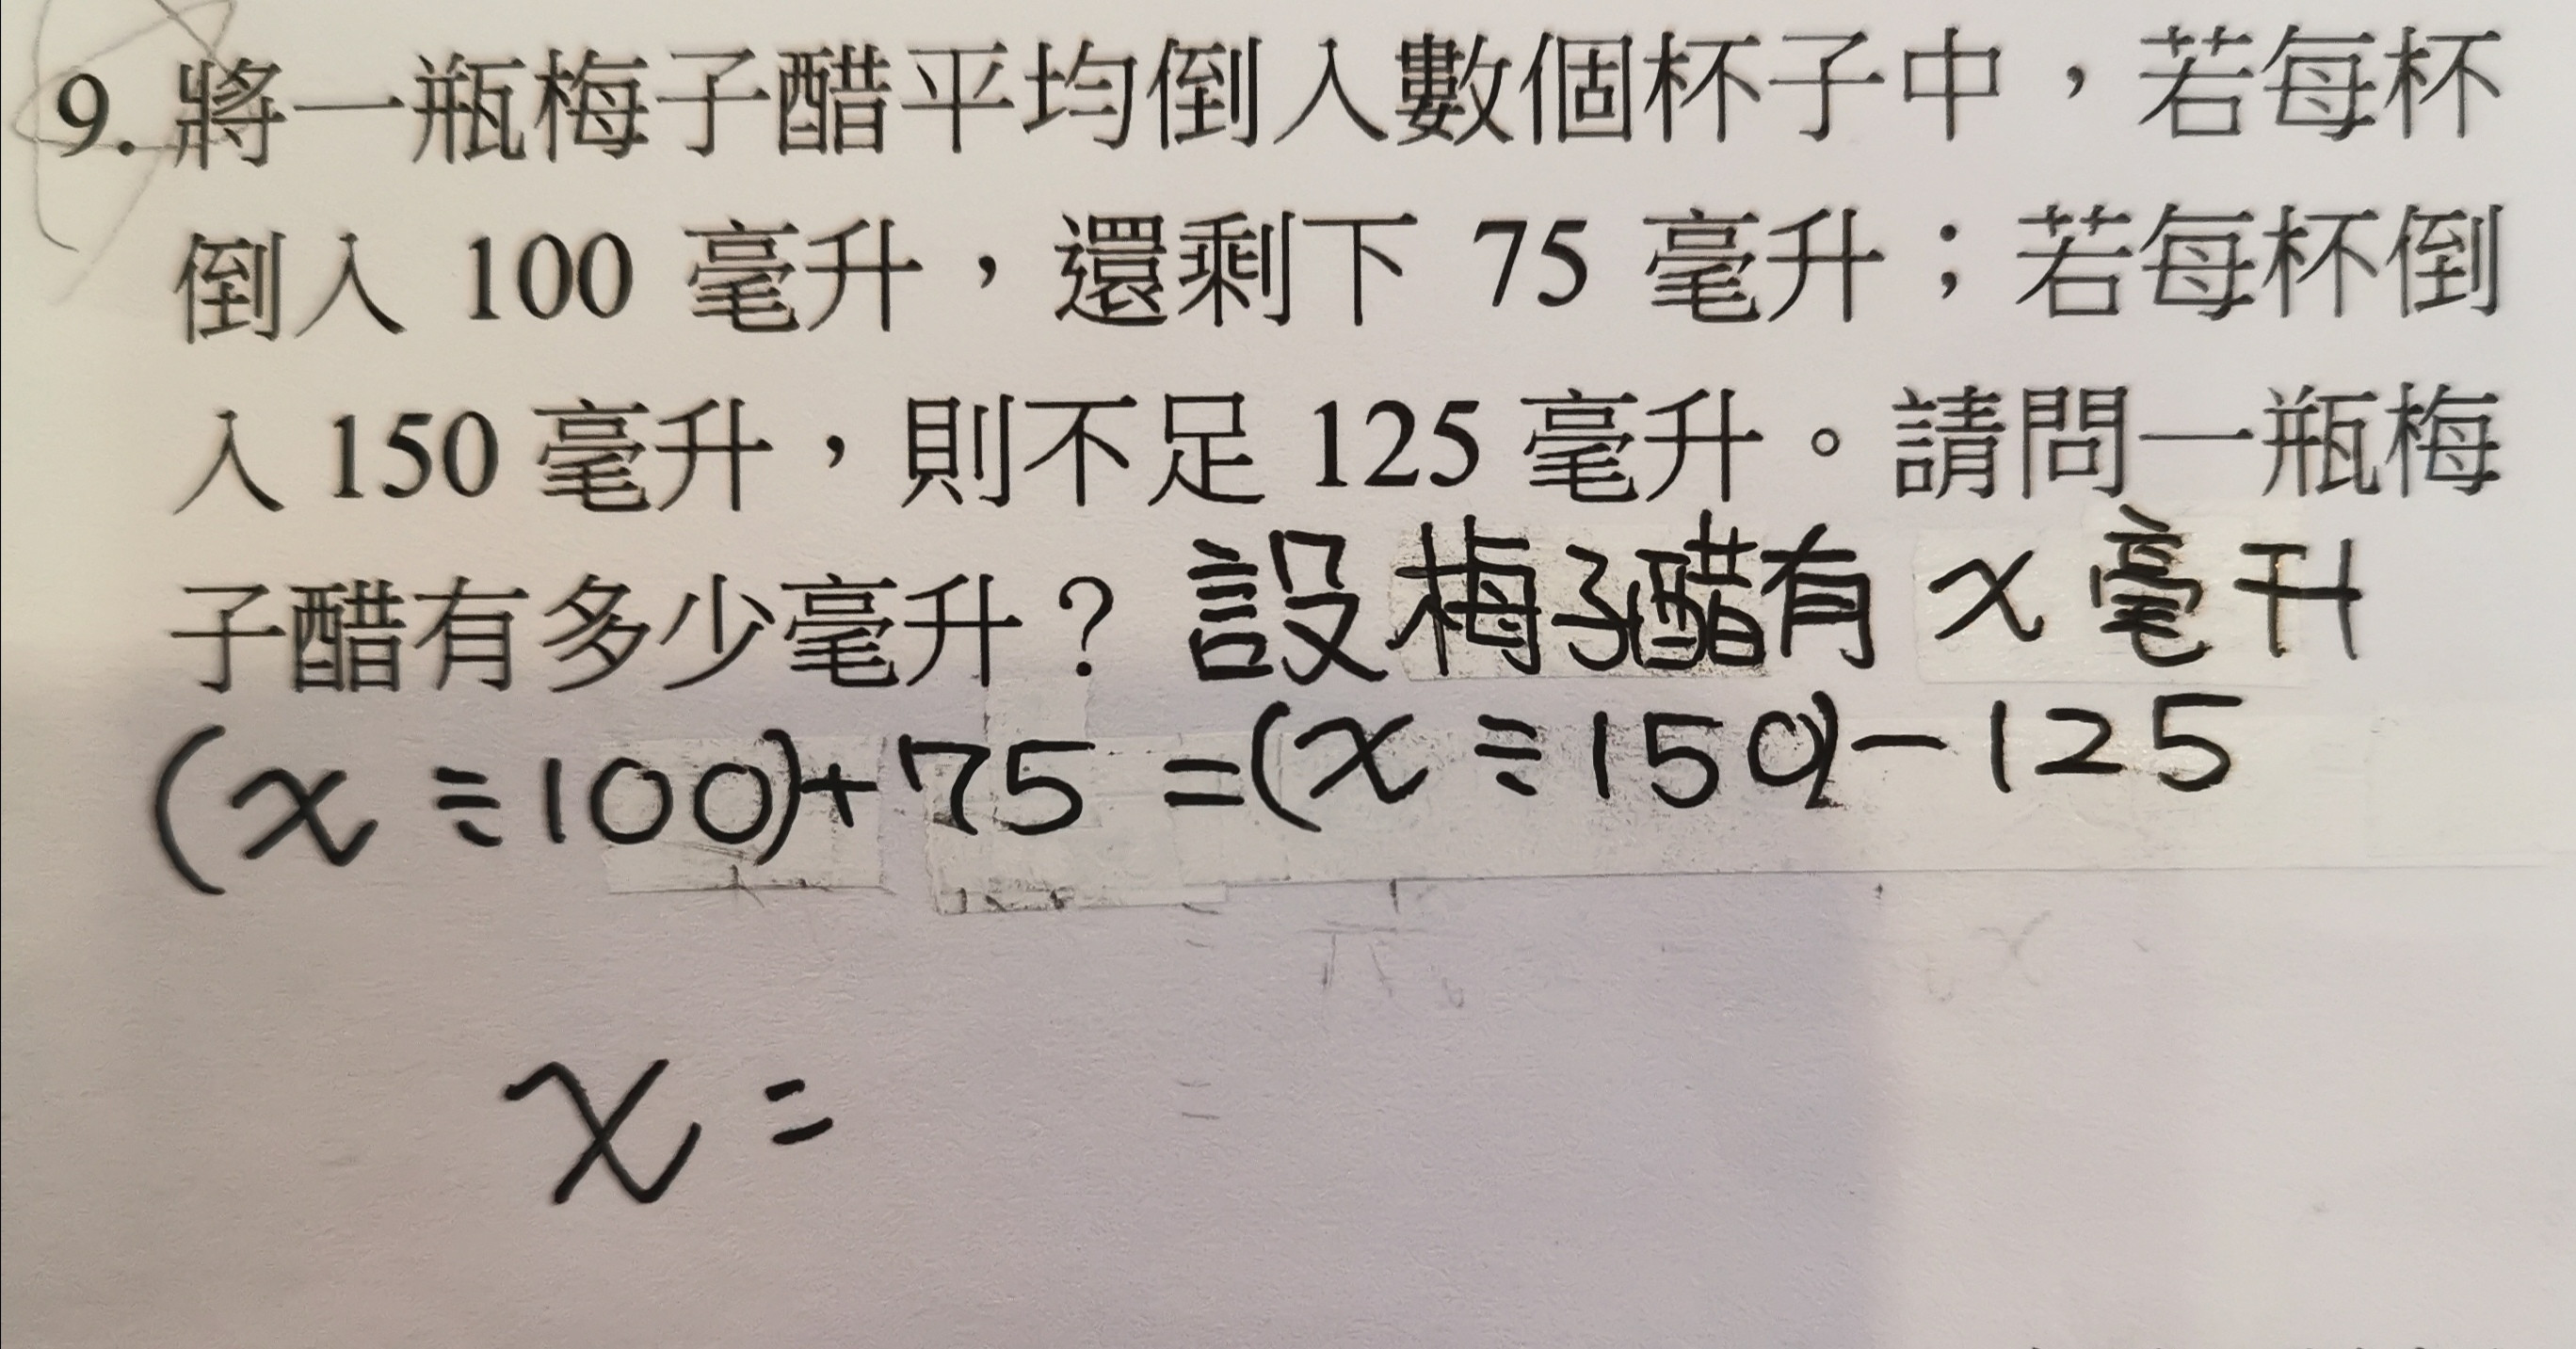 9. 將一瓶梅子醋平均倒入數個杯子中，若每杯
倒入 100 毫升，還剩下 75 毫升；若每杯倒
入 150 毫升，則不足 125 毫升。請問一瓶梅
子醋有多少毫升？設梅子醋有 x 毫升
(x ÷ 100) + 75 = (x ÷ 150) - 125
x =